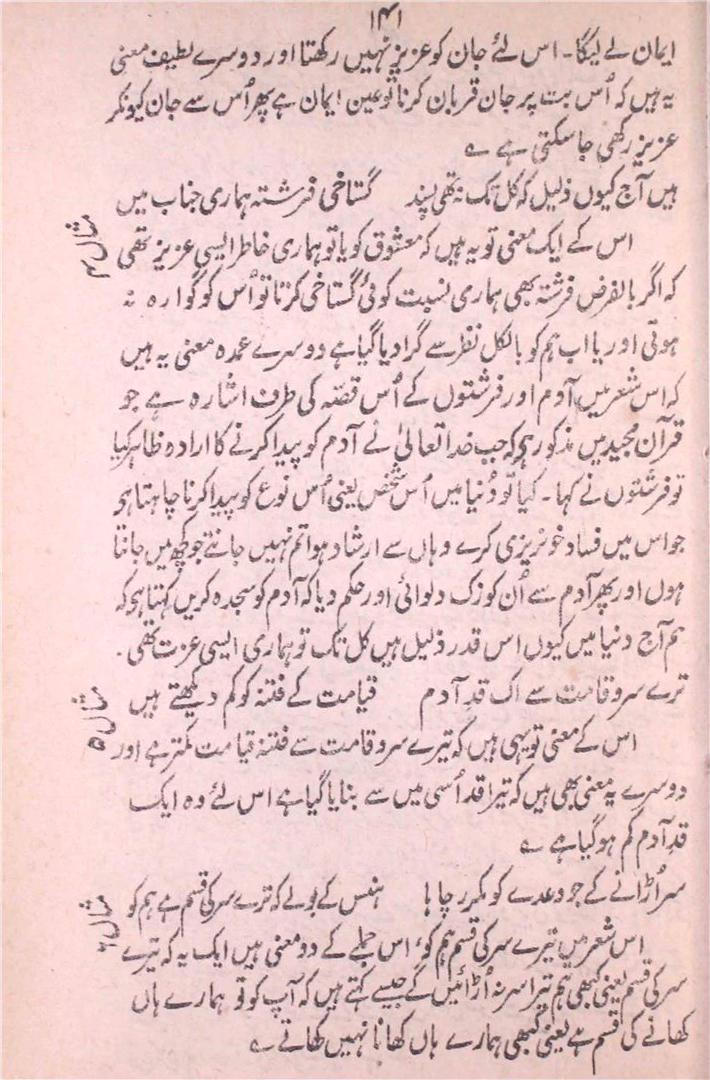 ۱۴۱
ایمان لے لیگا۔ اس لئے جان کو عزیز نہیں رکھتا اور دوسرے لطیف معنی
یہ ہیں کہ اُس بت پر جان قربان کرنا تو عین ایمان ہے پھر اُس سے جان کیونکر
عزیز رکھی جا سکتی ہے ؎
ہیں آج کیوں ذلیل کہ کل تک نہ تھی پسند گستاخی فرشتہ ہماری جناب میں
مثال ۴
اس کے ایک معنی تو یہ ہیں کہ معشوق کو یا تو ہماری خاطر ایسی عزیز تھی
کہ اگر بالفرض فرشتہ بھی ہماری نسبت کوئی گستاخی کرتا تو اُس کو گوارہ نہ
ہوتی اور یا اب ہم کو بالکل نظر سے گرا دیا گیا ہے دوسرے عمدہ معنی یہ ہیں
کہ اس شعر میں آدم اور فرشتوں کے اُس قصّہ کی طرف اشارہ ہے جو
قرآن مجید میں مذکور ہی کہ جب خدا تعالیٰ نے آدم کو پیدا کرنے کا ارادہ ظاہر کیا
تو فرشتوں نے کہا۔ کیا تو دُنیا میں اُس شخص یعنی اُس نوع کو پیدا کرنا چاہتا ہی
جو اس میں فساد و خونریزی کرے وہاں سے ارشاد ہوا تم نہیں جانتے جو کچھ میں جانتا
ہوں اور پھر آدم سے اُن کو زک دلوائی اور حکم دیا کہ آدم کو سجدہ کریں کہتا ہی کہ
ہم آج دنیا میں کیوں اس قدر ذلیل ہیں کل تک تو ہماری ایسی عزت تھی۔
ترے سرو قامت سے اک قدِ آدم قیامت کے فتنہ کو کم دیکھتے ہیں
مثال ۵
اس کے معنی تو یہی ہیں کہ تیرے سرو قامت سے فتنۂ قیامت کمتر ہے اور
دوسرے یہ معنی بھی ہیں کہ تیرا قد اُسی میں سے بنایا گیا ہے اس لئے وہ ایک
قدِ آدم کم ہو گیا ہے ؎
سر اُڑانے کے جو وعدے کو مکرر چاہا ہنس کے بولے کہ ترے سر کی قسم ہے ہم کو
مثال ۶
اس شعر میں تیرے سر کی قسم ہم کو، اس جملے کے دو معنی ہیں ایک یہ کہ تیرے
سر کی قسم یعنی کبھی ہم تیرا سر نہ اُڑائیں گے جیسے کہتے ہیں کہ آپ کو تو ہمارے ہاں
کھانے کی قسم ہے یعنی کبھی ہمارے ہاں کھانا نہیں کھاتے ؎